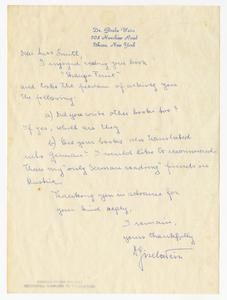 Dr. Gisela Weiss
Ithaca, New York
Dear Miss Smith,
I enjoyed reading your book
and take the freedom of asking you
the following
a) Did you write other books too?
If yes, which are they
b) Did your books also translated
into German? I would like to recommend
them my "only German reading" friends in
Austria.
Thanking you in advance for
your kind reply,
I remain,
yours thankfully